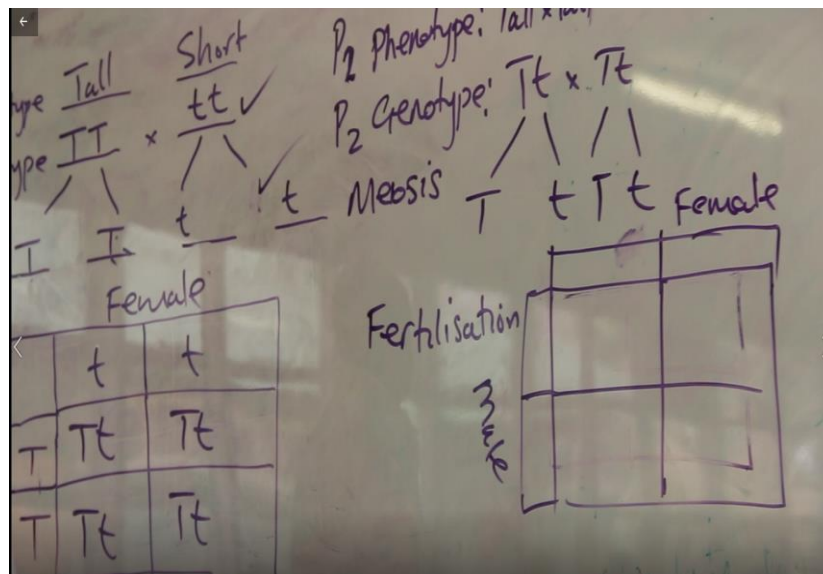 Tall Short
TT × tt ✓
T T t t ✓
Female
t t
T Tt Tt
T Tt Tt
P2 Phenotype: Tall × Tall
P2 Genotype: Tt × Tt
Meosis T t T t
Female
Fertilisation
Male